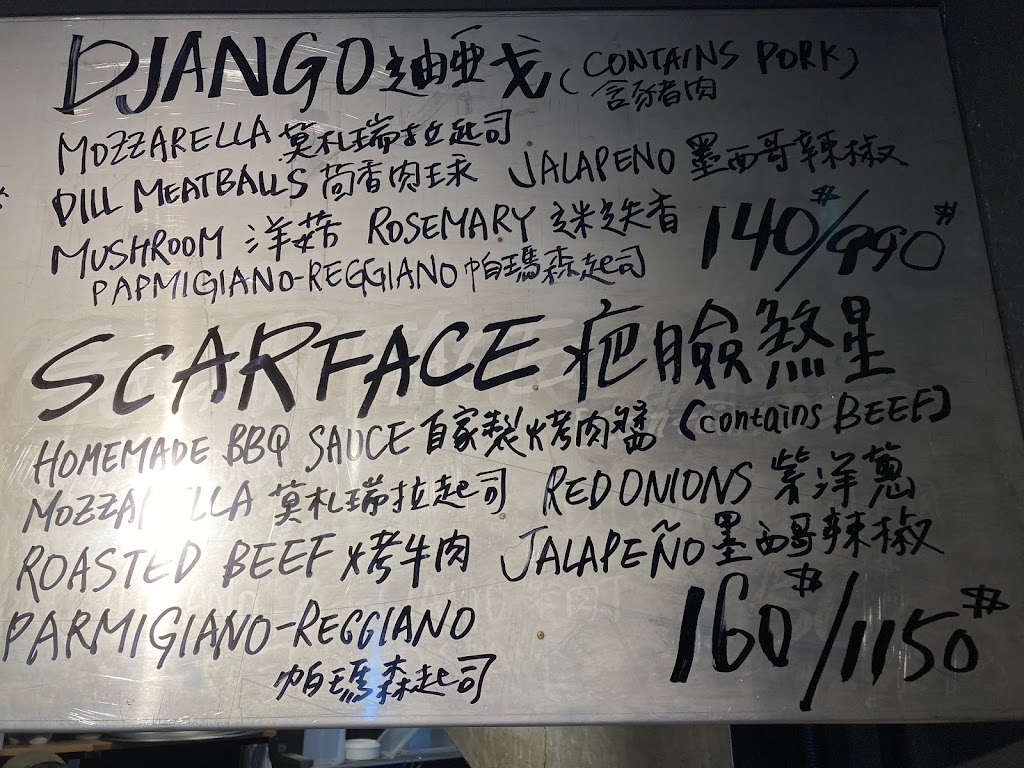 DJANGO 迪亞戈 (CONTAINS PORK)
含豬肉
MOZZARELLA 莫札瑞拉起司
DILL MEATBALLS 茴香肉球 JALAPENO 墨西哥辣椒
MUSHROOM 洋菇 ROSEMARY 迷迭香 140#/990#
PAPMIGIANO-REGGIANO 帕瑪森起司
SCARFACE 疤臉煞星
HOMEMADE BBQ SAUCE 自家製烤肉醬 (contains BEEF)
MOZZA LLA 莫札瑞拉起司 RED ONIONS 紫洋蔥
ROASTED BEEF 烤牛肉 JALAPEÑO 墨西哥辣椒
PARMIGIANO-REGGIANO 160#/1150#
帕瑪森起司